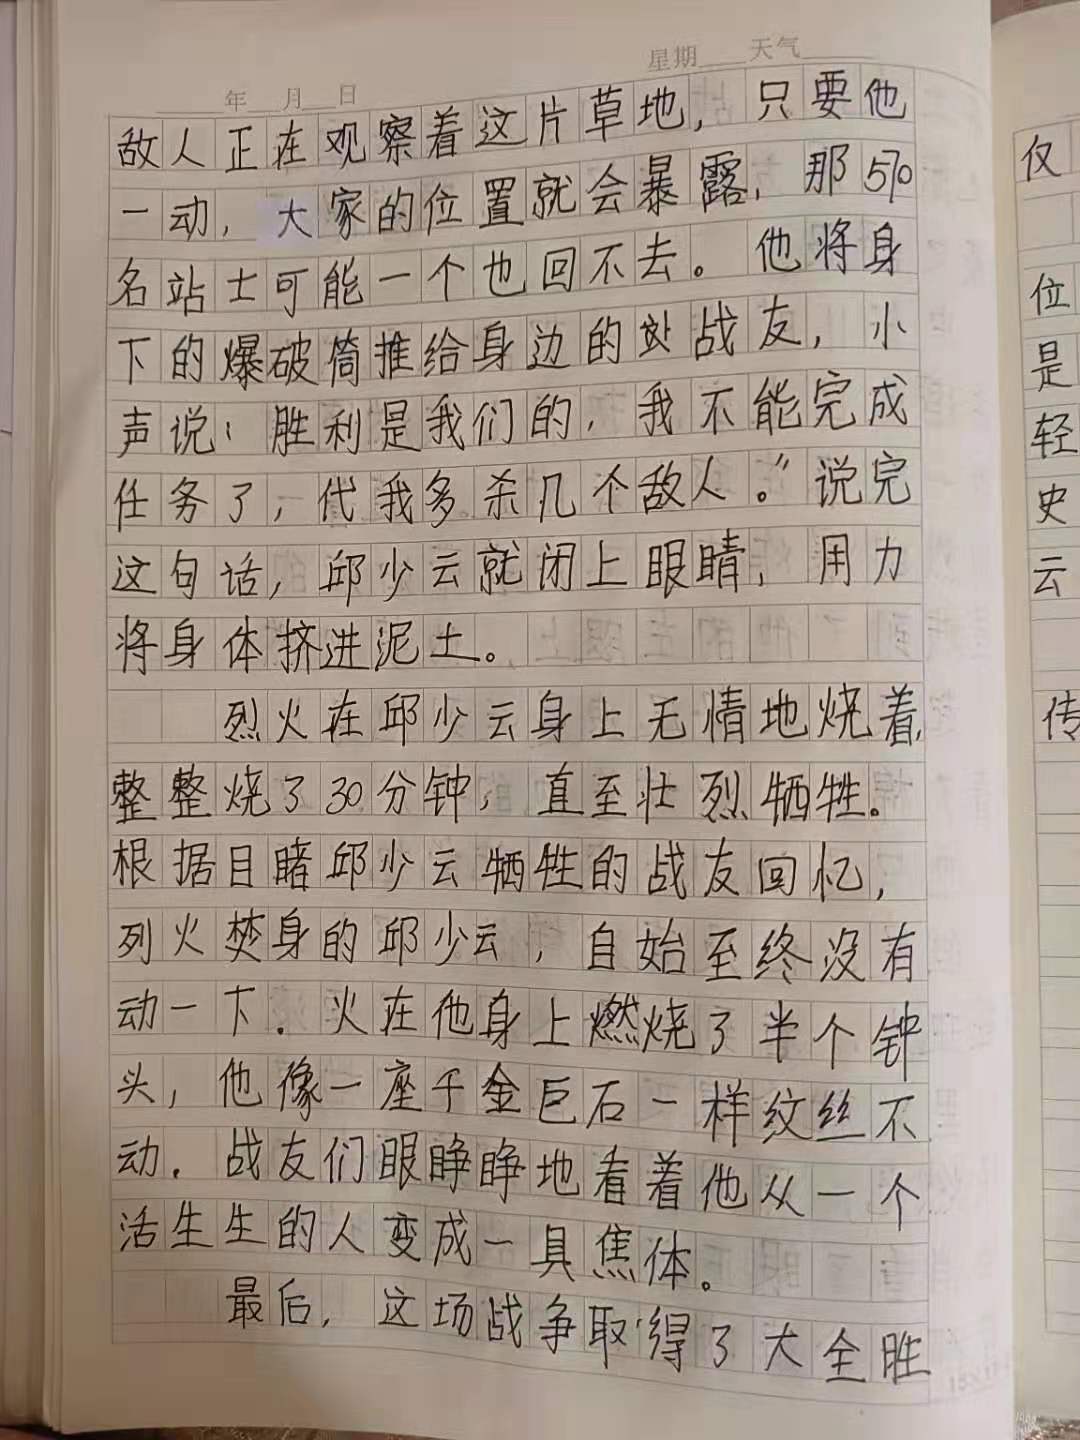 星期 天气
年 月 日
敌人正在观察着这片草地，只要他
一动，大家的位置就会暴露，那570
名站士可能一个也回不去。他将身
下的爆破筒推给身边的战友，小
声说：胜利是我们的，我不能完成
任务了，代我多杀几个敌人。”说完
这句话，邱少云就闭上眼睛，用力
将身体挤进泥土。
烈火在邱少云身上无情地烧着，
整整烧了30分钟，直至壮烈牺牲。
根据目睹邱少云牺牲的战友回忆，
列火焚身的邱少云，自始至终没有
动一下．火在他身上燃烧了半个钟
头，他像一座千金巨石一样纹丝不
动．战友们眼睁睁地看着他从一个
活生生的人变成一具焦体。
最后，这场战争取得了大全胜
仅
位
是
轻
史
云
传